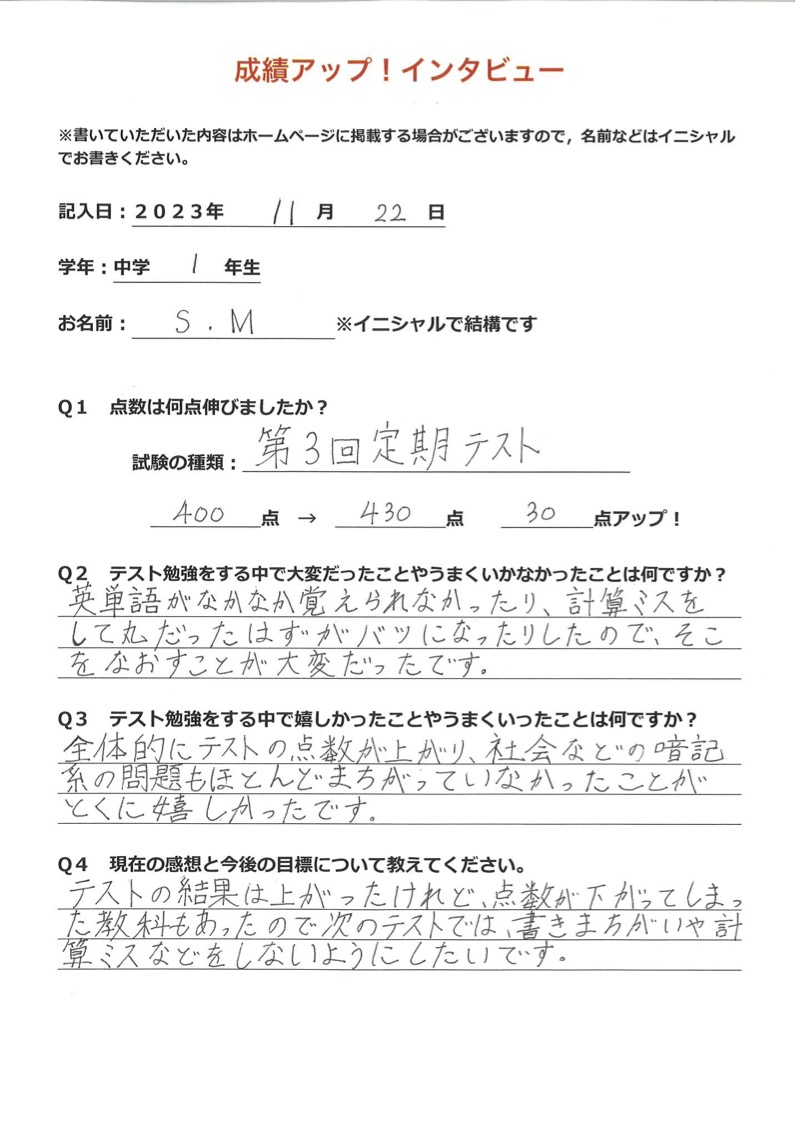 成績アップ！インタビュー
※書いていただいた内容はホームページに掲載する場合がございますので，名前などはイニシャル
でお書きください。
記入日：２０２３年 11 月 22 日
学年：中学 1 年生
お名前： S . M ※イニシャルで結構です
Ｑ１ 点数は何点伸びましたか？
試験の種類： 第3回定期テスト
400 点 → 430 点 30 点アップ！
Ｑ２ テスト勉強をする中で大変だったことやうまくいかなかったことは何ですか？
英単語がなかなか覚えられなかったり、計算ミスを
して丸だったはずがバツになったりしたので、そこ
をなおすことが大変だったです。
Ｑ３ テスト勉強をする中で嬉しかったことやうまくいったことは何ですか？
全体的にテストの点数が上がり、社会などの暗記
系の問題もほとんどまちがっていなかったことが
とくに嬉しかったです。
Ｑ４ 現在の感想と今後の目標について教えてください。
テストの結果は上がったけれど、点数が下がってしまっ
た教科もあったので次のテストでは、書きまちがいや計
算ミスなどをしないようにしたいです。